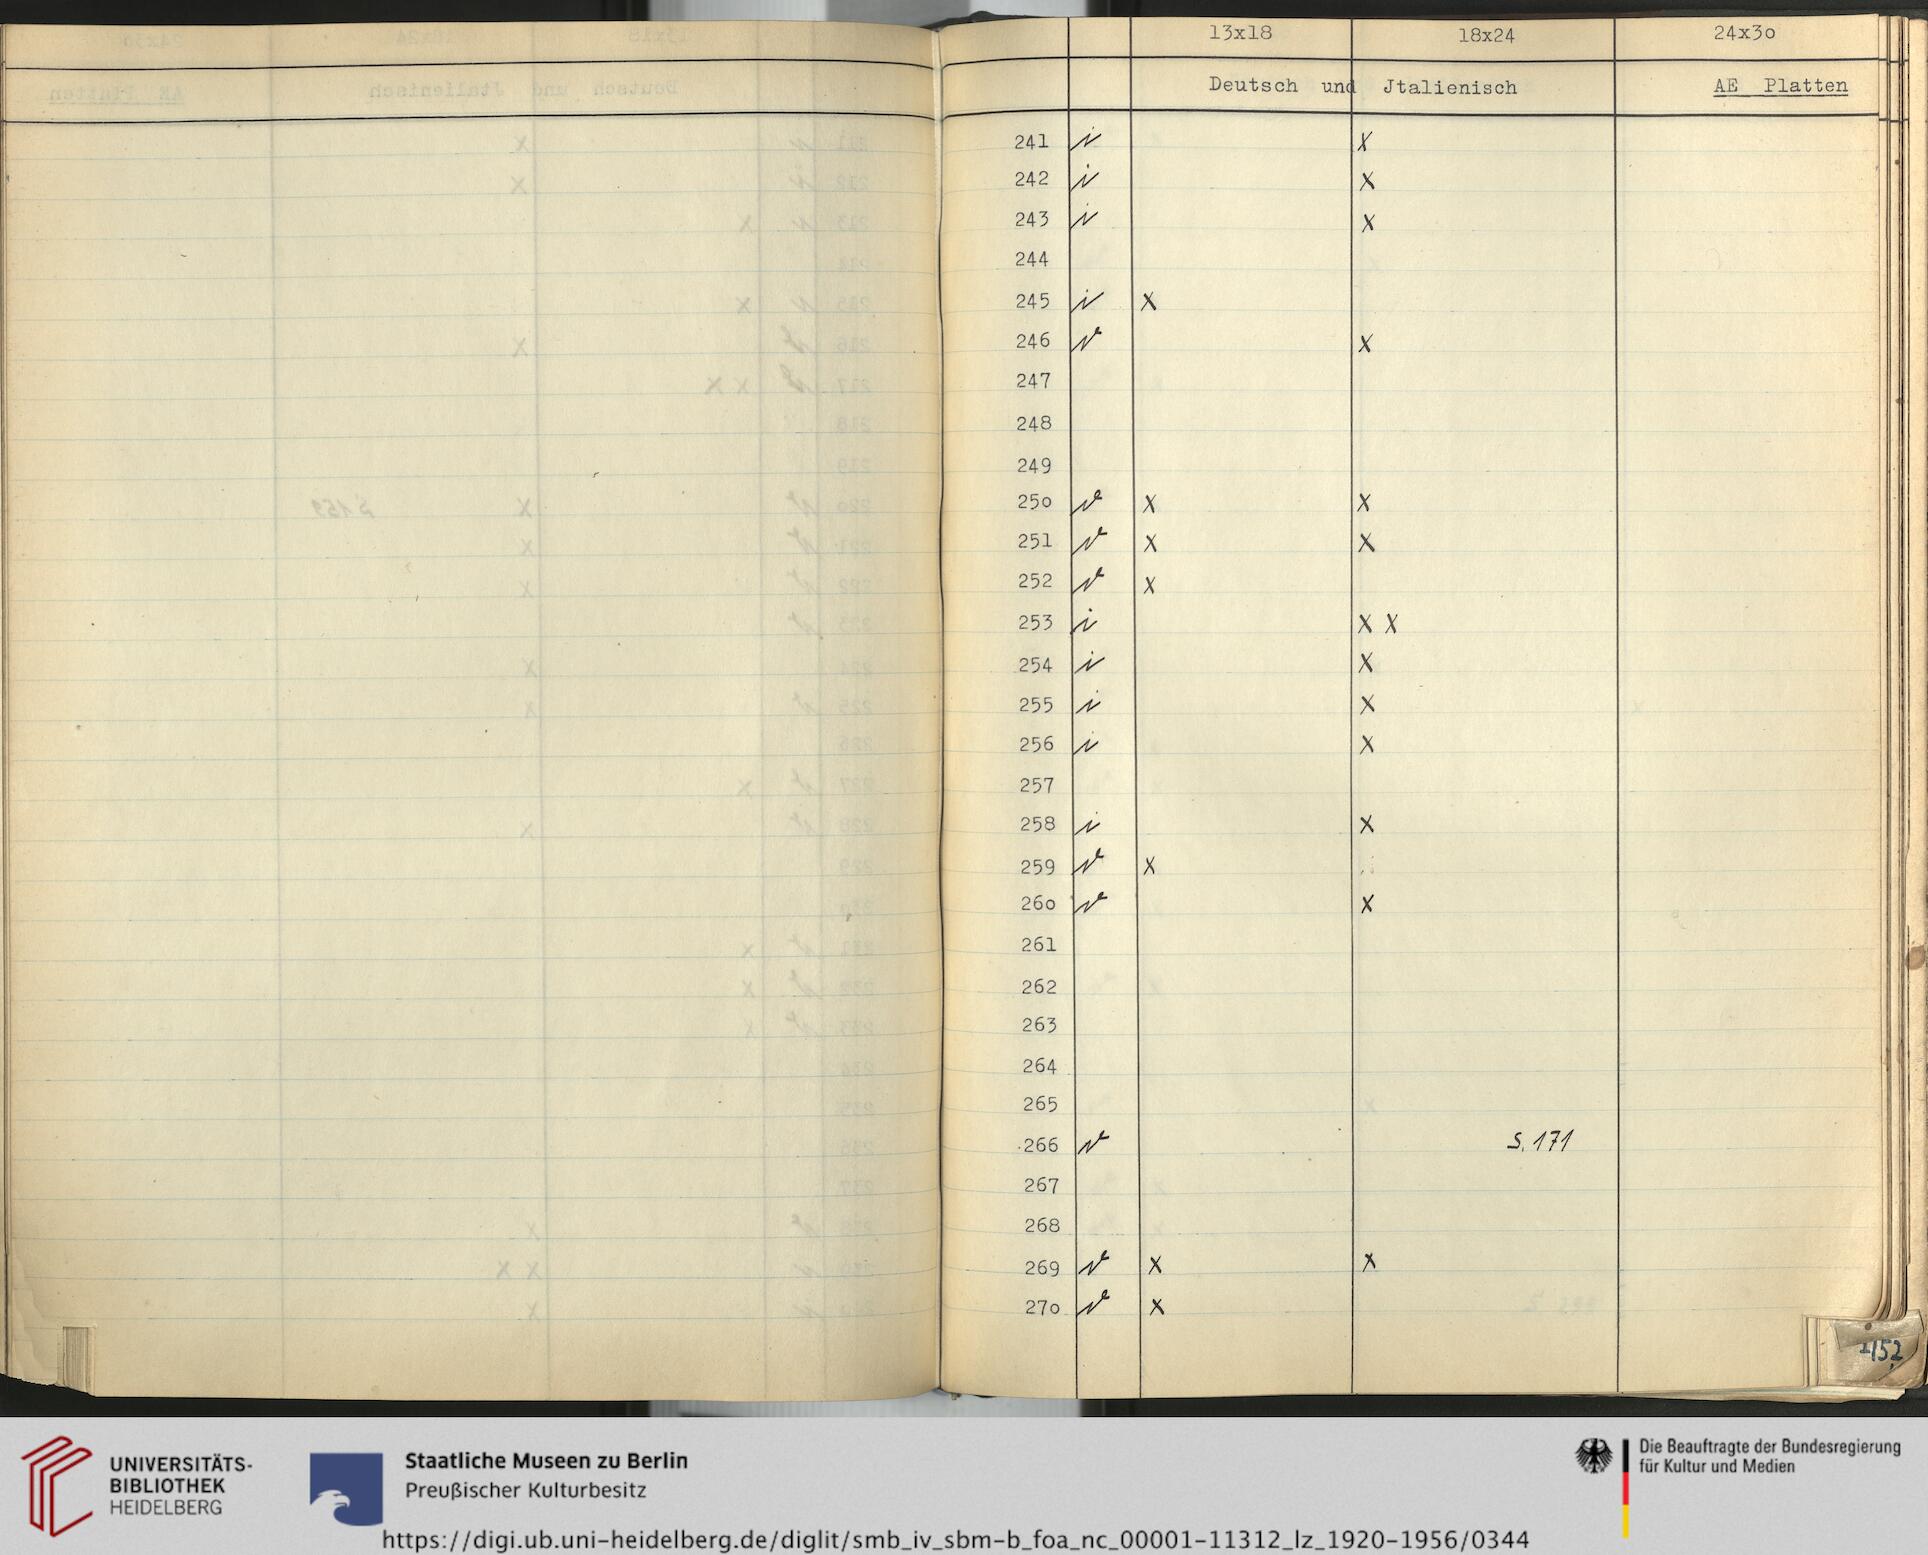 13x18 18x24 24x3o
Deutsch und Jtalienisch AE Platten
241 x
242 x
243 x
244
245 x
246 x
247
248
249
25o x x
251 x x
252 x
253 x x
254 x
255 x
256 x
257
258 x
259 x
26o x
261
262
263
264
265
266 S. 171
267
268
269 x x
27o x
UNIVERSITÄTS-
BIBLIOTHEK
HEIDELBERG
Staatliche Museen zu Berlin
Preußischer Kulturbesitz
Die Beauftragte der Bundesregierung
für Kultur und Medien
https://digi.ub.uni-heidelberg.de/diglit/smb_iv_sbm-b_foa_nc_00001-11312_lz_1920-1956/0344